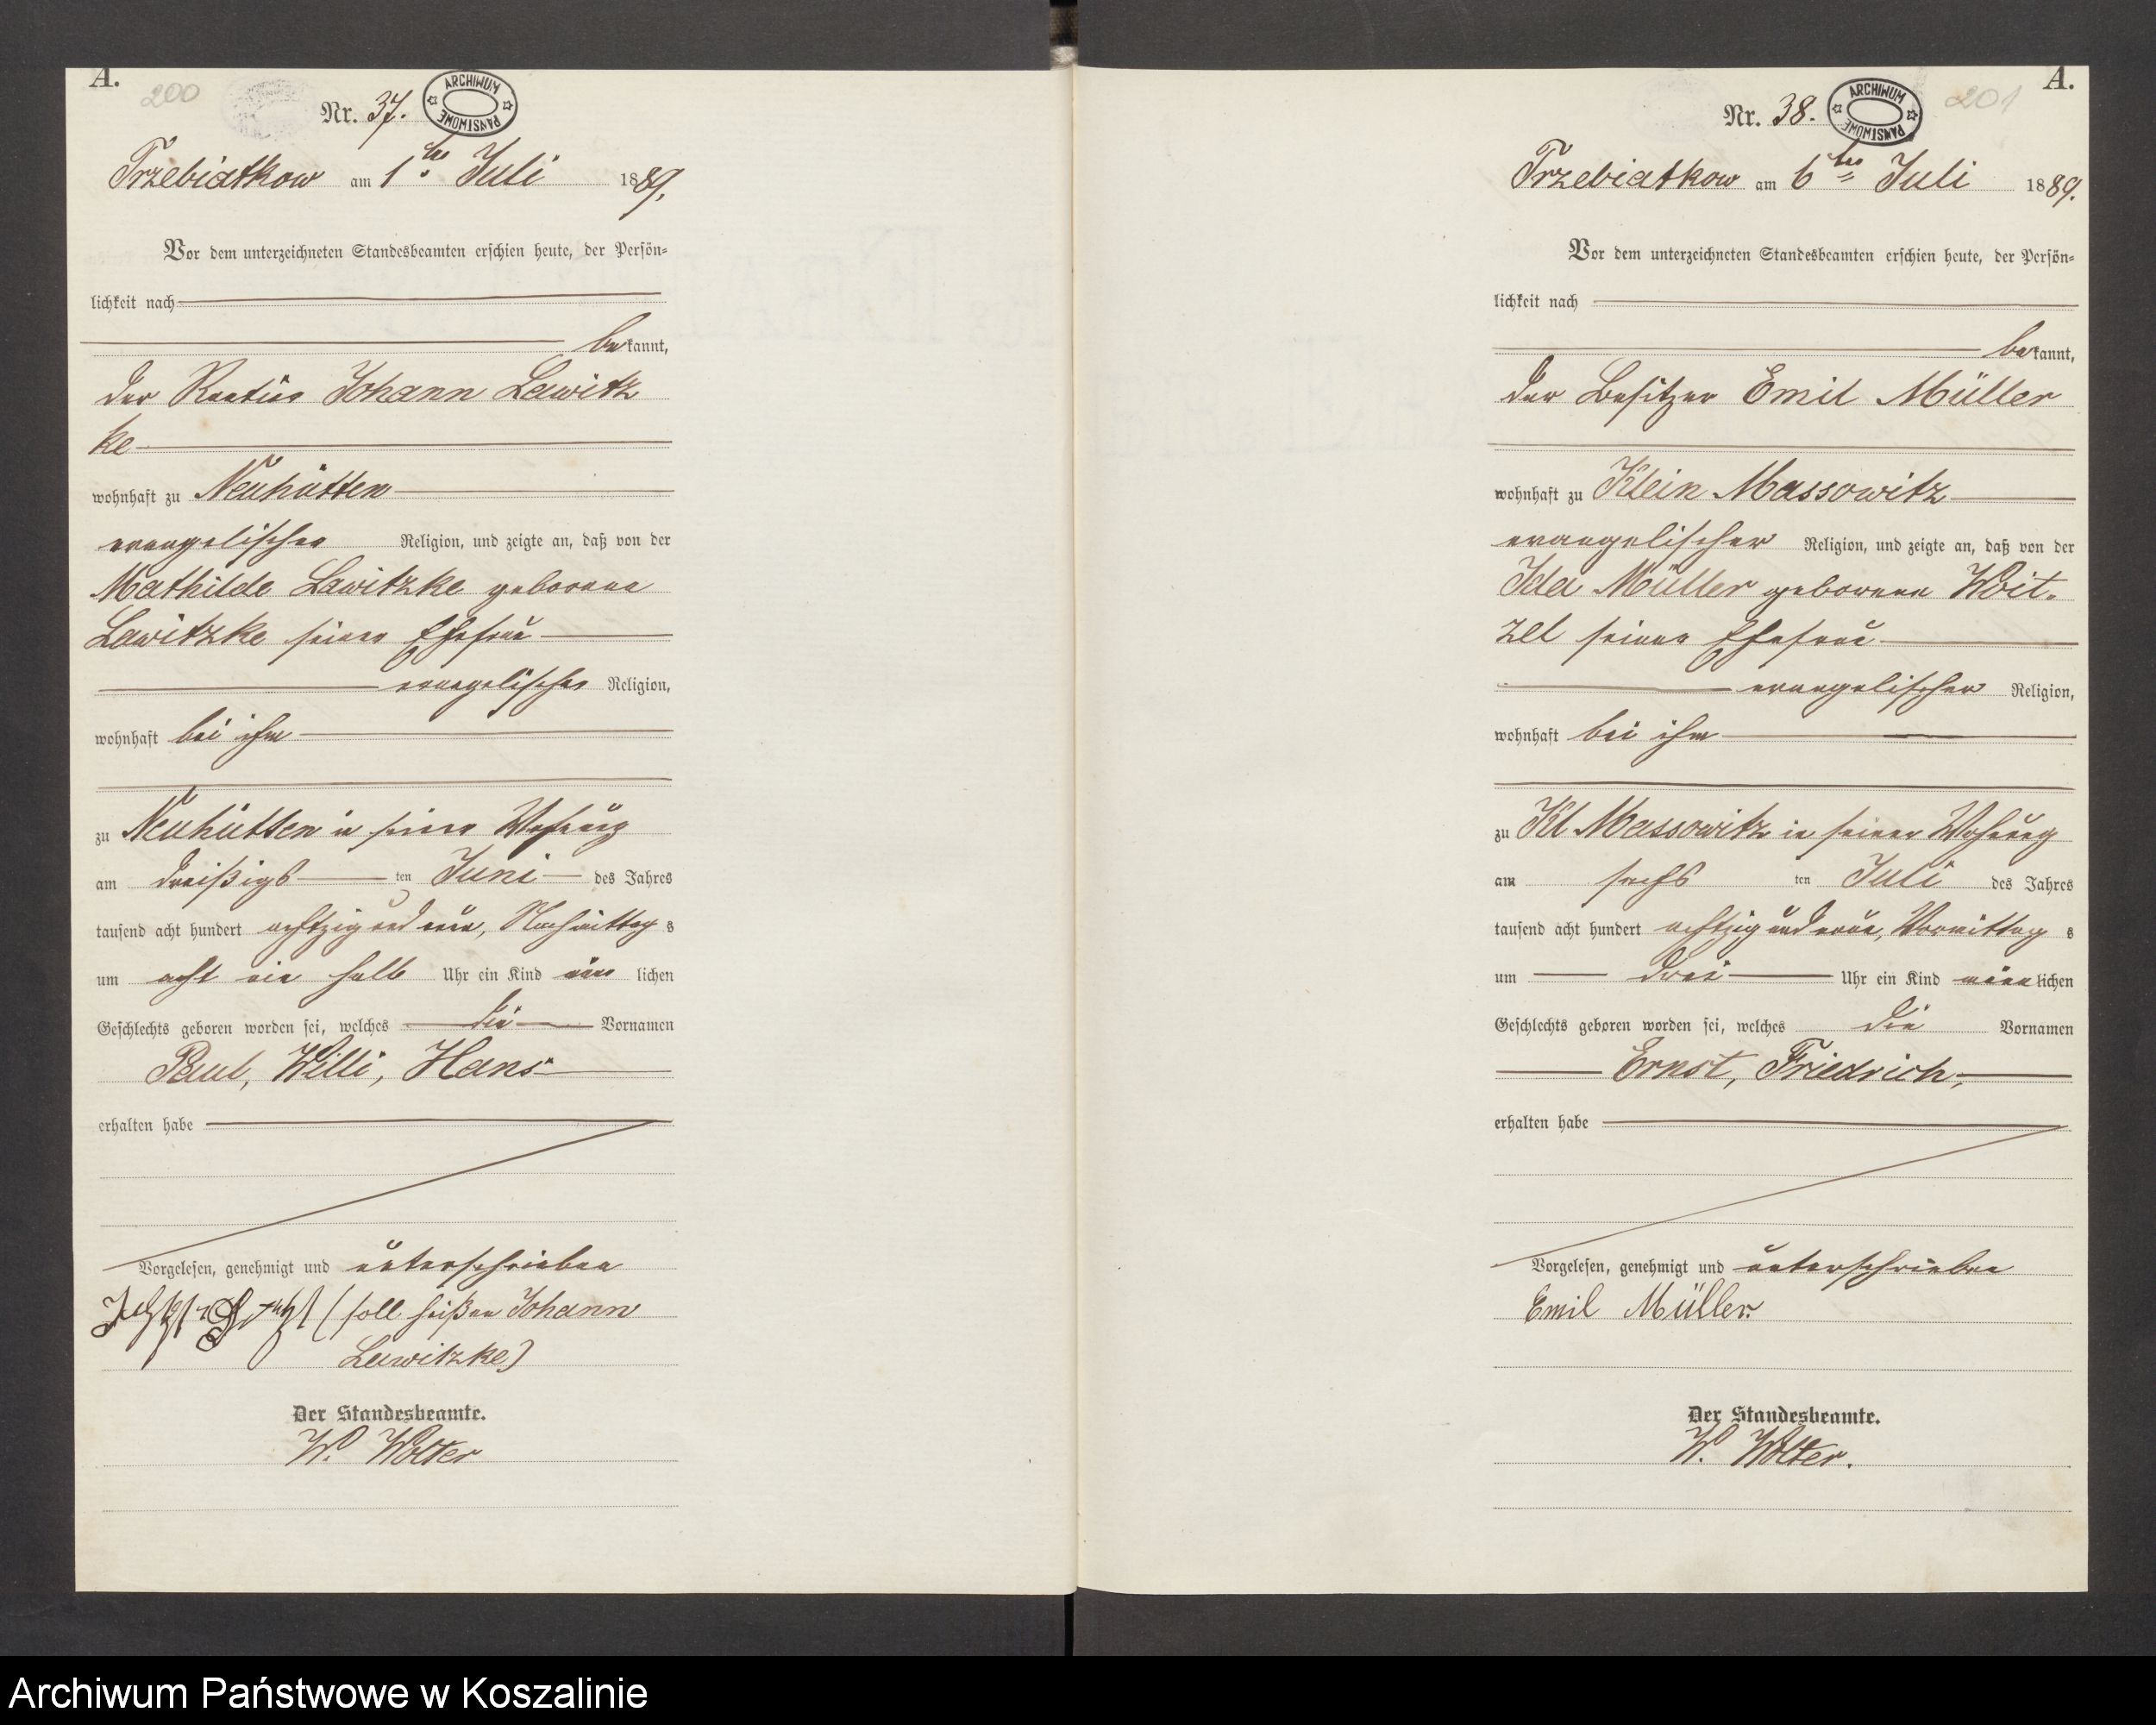 A.
200
Nr. 37.
ARCHIWUM PAŃSTWOWE
Trzebiatkow am 1ten Juli 1889.
Vor dem unterzeichneten Standesbeamten erschien heute, der Persön-
lichkeit nach
bekannt,
der Johann Lawitz
ke
wohnhaft zu Neuhütten
evangelischer Religion, und zeigte an, daß von der
Mathilde Lawitzke geborene
Lawitzke seiner Ehefrau
evangelischer Religion,
wohnhaft bei ihm
zu Neuhütten in seiner Wohnung
am dreißigs ten Juni des Jahres
tausend acht hundert achtzig und neun, Nachmittag s
um acht ein halb Uhr ein Kind männ lichen
Geschlechts geboren worden sei, welches die Vornamen
Paul, Willi, Hans
erhalten habe
Vorgelesen, genehmigt und unterschrieben
(soll heißen Johann
Lawitzke)
Der Standesbeamte.
W. Wolter
A.
201
Nr. 38.
ARCHIWUM PAŃSTWOWE
Trzebiatkow am 6ten Juli 1889.
Vor dem unterzeichneten Standesbeamten erschien heute, der Persön-
lichkeit nach
bekannt,
der Besitzer Emil Müller
wohnhaft zu Klein Massowitz
evangelischer Religion, und zeigte an, daß von der
Ida Müller geborene Woit-
zel seiner Ehefrau
evangelischer Religion,
wohnhaft bei ihm
zu Kl Massowitz in seiner Wohnung
am sechs ten Juli des Jahres
tausend acht hundert achtzig und neun, Vormittag s
um drei Uhr ein Kind männlichen
Geschlechts geboren worden sei, welches die Vornamen
Ernst, Friedrich,
erhalten habe
Vorgelesen, genehmigt und unterschrieben
Emil Müller.
Der Standesbeamte.
W. Wolter.
Archiwum Państwowe w Koszalinie